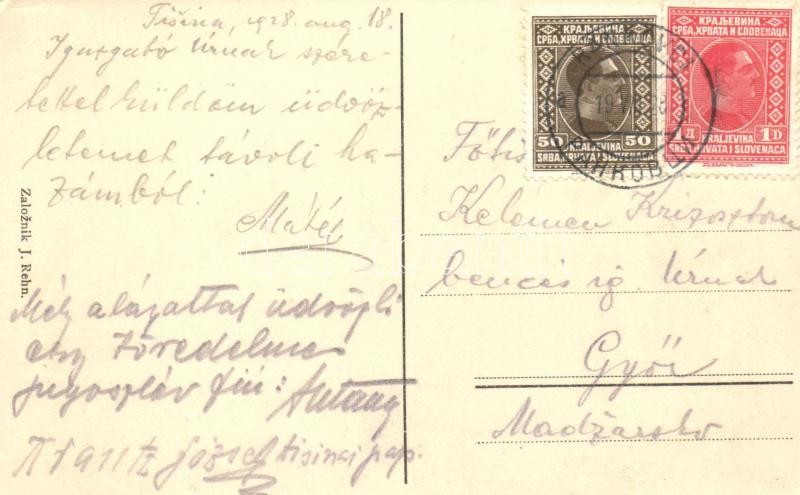 Tišina, 1928. aug. 18.
Igazgató Úrnak szere-
tettel küldöm üdvöz-
letemet távoli ha-
zámból:
Máté
Mély alázattal üdvözli
egy töredelmes
jugoszláv fiú: Antang
Krantz József tisinai pap.
Založnik J. Rehn.
КРАЉЕВИНА
СРБА, ХРВАТА И СЛОВЕНАЦА
50 50
KRALJEVINA
SRBA, HRVATA I SLOVENACA
КРАЉЕВИНА
СРБА, ХРВАТА И СЛОВЕНАЦА
Д 1 D
KRALJEVINA
SRBA, HRVATA I SLOVENACA
Kelemen Krizosztom
bencés ig. Úrnak
Győr
Madžarsko